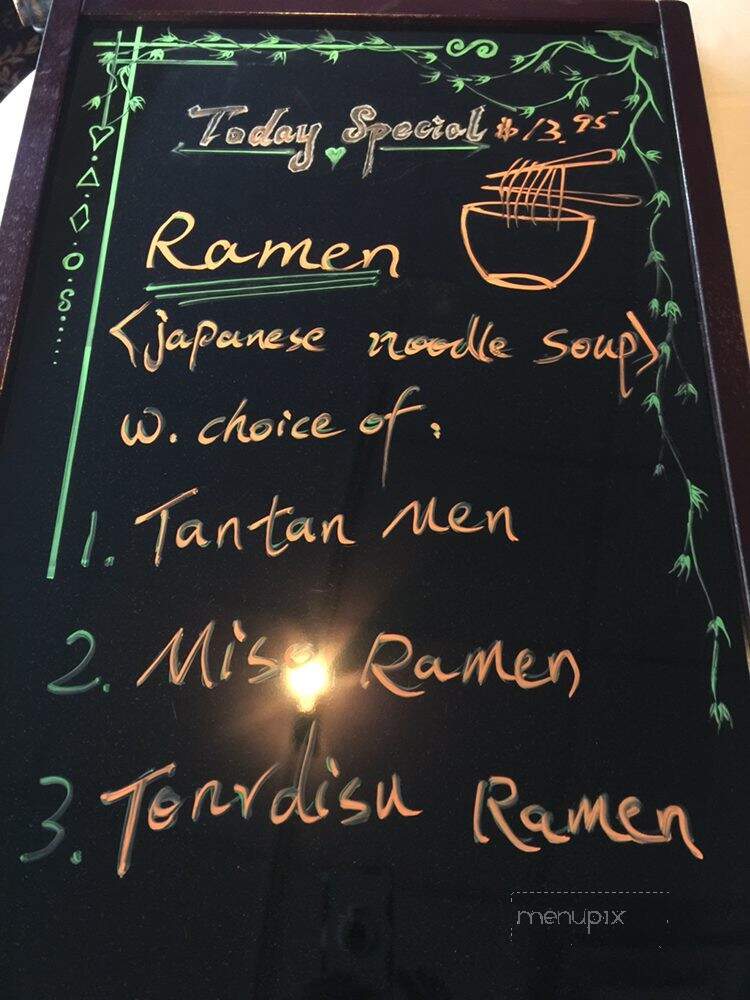 Today Special $13.95
Ramen
<japanese noodle soup>
w. choice of:
1. Tantan Men
2. Miso Ramen
3. Ramen
menupix